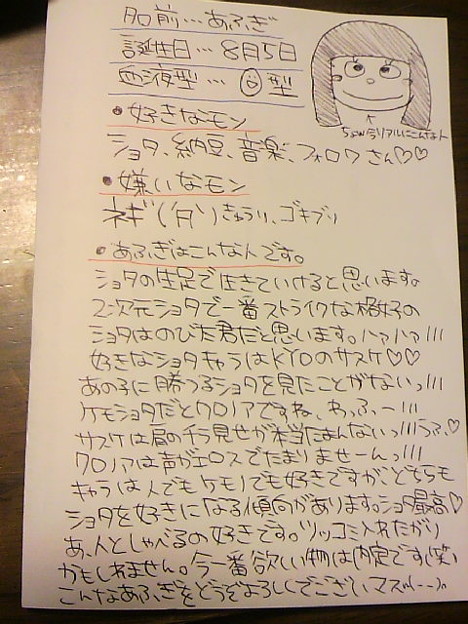 名前…あふぎ
誕生日…8月5日
血液型…O型
ちょwwリアルにこんな人
•好きなモン
ショタ、納豆、音楽、フォロワさん♡♡
•嫌いなモン
ネギ('A`)きゅうり、ゴキブリ
•あふぎはこんな人です。
ショタの生足で生きていけると思います。
2次元ショタで一番ストライクな格好の
ショタはのびた君だと思います。ハァハァ!!!
好きなショタキャラはKYOのサスケ♡♡
あの子に勝つるショタを見たことがないっ!!!
ケモショタだとクロノアですね、わっふー!!!
サスケは肩のチラ見せが本当たまんないっ!!!うふ、♡
クロノアは声がエロスでたまりませーんっ!!!
キャラは人でもケモノでも好きですが、どちらも
ショタを好きになる傾向があります。ショタ最高♡
あ、人としゃべるの好きです。ツッコミ入れたがり
かもしれません。今一番欲しい物は内定です(笑
こんなあふぎをどうぞよろしくでございマス